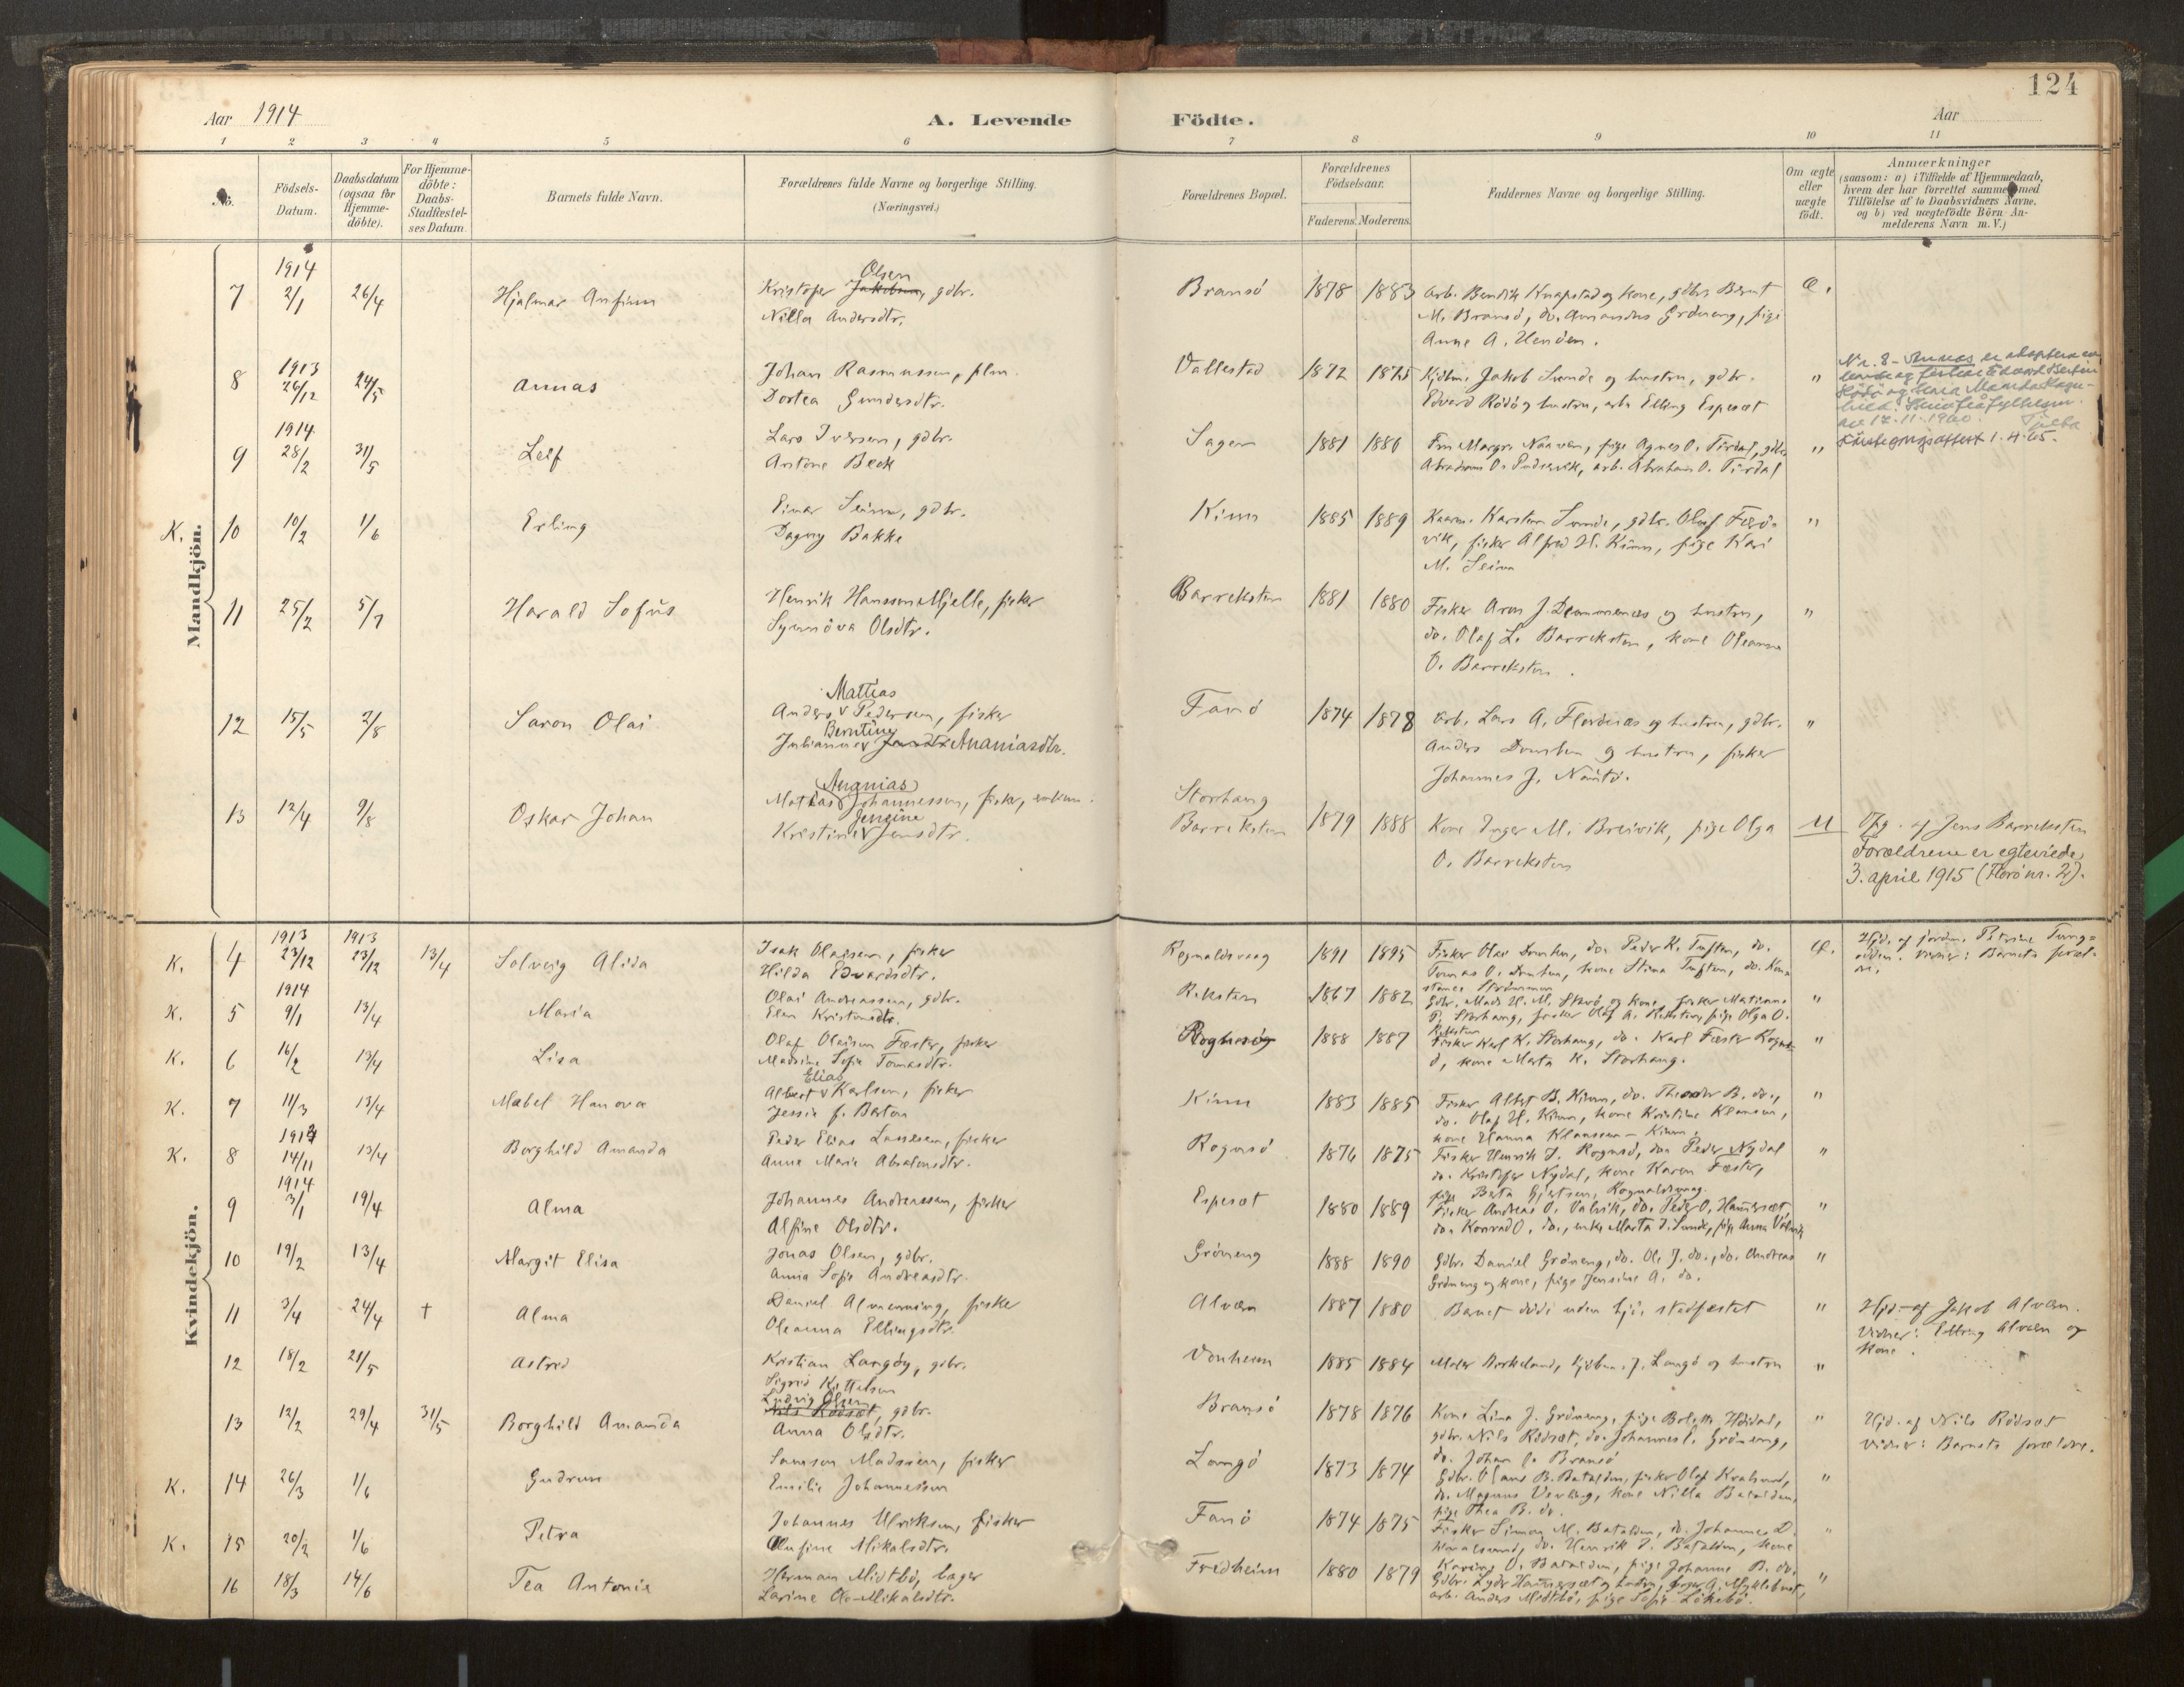 124
Aar 1914
A. Levende Födte.
Aar
1 2 3 4 5 6 7 8 9 10 11
No.
Födsels-Datum.
Daabsdatum (ogsaa for Hjemme-döbte).
For Hjemme-döbte: Daabs-Stadfæstel-ses Datum
Barnets fulde Navn.
Forældrenes fulde Navne og borgerlige Stilling.
(Næringsvei.)
Forældrenes Bopæl.
Forældrenes Födselsaar.
Faderens. Moderens.
Faddernes Navne og borgerlige Stilling.
Om ægte eller uægte födt.
Anmærkninger
(saasom: a) i Tilfælde af Hjemmedaab, hvem der har forrettet samme med Tilföielse af to Daabsvidners Navne, og b) ved uægtefödte Börn An-melderens Navn m. V.)
Mandkjön.
1914
7 2/1 26/4 Hjalmar Anfinn Kristofer Jakobsen Olsen, gdbr. Bransö 1878 1883 Arb. Bendik Knapstad og kone, gdbr. Bernt Æ.
Nilla Andersdtr. M. Bransö, do. Amandus Gröneng, pige
Anne A. Hendén.
1913
8 26/12 24/5 Annas Johan Rasmussen, plm. Vallestad 1872 1875 Kjöbm. Jakob Sunde og hustru, gdbr. "
Dortea Gundersdtr. Edvard Rödö og hustru, arb. Elling Espeset
Nr. 8 - Annas er
17.11.1960.
1.4.65.
1914
9 28/2 31/5 Leif Lars Iversen, gdbr. Sagen 1881 1886 Fru Margr. Naaven, pige Agnes O. Tirdal, gdbr. "
Antone Beck Abraham O. arb. Abraham O. Tirdal
K. 10 10/2 1/6 Erling Einar Seim, gdbr. Kinn 1885 1889 Karsten Sunde, gdbr. Olaf Færö- "
Dagny Bakke vik, fisker Alfred H. Kinn, pige Kari
M. Seim
11 25/2 5/7 Harald Sofus Henrik Hansson Mjelle, fisker Barreksten 1881 1880 Fisker Aron J. og hustru, "
Synnöva Olsdtr. do. Olaf L. Barreksten, kone Oleanna
O. Barreksten.
12 15/5 2/8 Saron Olai Anders Mattias Pedersen, fisker Fanö 1874 1878 Arb. Lars A. Florenæs og hustru, gdbr. "
Julianne Berntine Ananiasdtr. Anders og hustru, fisker
Johannes J.
13 12/4 9/8 Oskar Johan Matias (Ananias) Johannessen, fisker, Storhang 1879 1888 Kone Inger M. Breivik, pige Olga U
Kristine Jensine Jensdtr. Barreksten O. Barreksten
Opg. af Jens Barreksten
Forældrene er egteviede
3. april 1915 (Florö nr. 2).
Kvindekjön.
1913 1913
K. 4 23/12 23/12 13/4 Solveig Alida Isak Olaisen, fisker Rognaldsvaag 1891 1895 Fisker Olai do. Peder K. Tuften, do. Æ.
Hilda Edvardsdtr. Tomas O. kone Stina Tuften, do. Kon-
Hjd. af jordm. Petrine
Vidner: Barnets foræl-
dre.
1914
K. 5 9/1 13/4 Maria Olai Andreassen, gdbr. Reksten 1867 1882 Gdbr. Mads H. M. og kone, fisker "
Elen Kristensdtr. P. Storhang, fisker Olaf A. Reksten, pige Olga O.
Reksten
K. 6 16/2 13/4 Lisa Olaf Olaisen Fæster, fisker 1888 1887 Fisker Karl K. Storhang, do. Karl Fæster "
Madsine Sofie Tomasdtr. kone Marta K. Storhang.
K. 7 11/3 13/4 Mabel Hanora Albert Elias Karlsen, fisker Kinn 1883 1885 Fisker Albert B. Kinn, do. Theodor B. do., "
Jessie f. Barton do. Olaf H. Kinn, kone Kristine Klausen,
kone Hanna Klausen - Kinn.
1913
K. 8 14/11 13/4 Borghild Amanda Peder Elias Lassesen, fisker Rognsö 1876 1875 Fisker Henrik J. Rognsö, do. Peder Nydal "
Anne Marie Absalonsdtr. do. Kristofer Nydal, kone Karen Fæster,
pige Berta Gjertsen, Rognaldsvaag
1914
9 3/1 19/4 Alma Johannes Andreassen, fisker Espeset 1880 1889 Fisker Andreas O. Valvik, do. Peder O. Hammerset, "
Alfine Olsdtr. do. Konrad O. do., enke Marta J. Sunde, pige Anna
10 19/2 13/4 Margit Elisa Jonas Olsen, gdbr. Gröneng 1888 1890 Gdbr. Daniel Gröneng, do. Ole J. do., do. Andreas "
Anna Sofie Andreasdtr. Gröneng og kone, pige Jensine A. do.
11 3/4 24/4 † Alma Daniel Almenning, fisker Alvæn 1887 1880 Barnet döde uden bli stadfæstet "
Oleanna Ellingsdtr.
Hjd. af Jakob Alvæn.
Vidner: Elling Alvæn og
kone.
12 18/2 21/5 Astrid Kristian Langöy, gdbr. Vonheim 1885 1884 Maler Birkeland, kjöbm. J. Langö og hustru "
Sigrid Kittelsen
13 12/2 29/4 31/5 Borghild Amanda Ludvig Olsen Nils Rödset, gdbr. Bransö 1878 1876 Kone Lina J. Gröneng, pige "
Anna Olsdtr. gdbr. Nils Rödset, do. Johannes P. Gröneng,
do. Johan Bransö
Hjd. af Nils Rödset
Vidner: Barnets forældre.
K. 14 26/3 1/6 Gudrun Samson Madssen, fisker Langö 1873 1874 Gdbr. Olaus B. Batalden, fisker Olaf "
Emilie Johannessen do. Magnus kone Nilla Batalden,
pige Thea B. do.
K. 15 20/2 1/6 Petra Johannes Ulriksen, fisker Fanö 1874 1875 Fisker Simon M. Batalden, do. Johannes D. "
Mikalsdtr. do. Henrik J. Batalden, kone
O. Batalden, pige Johanne B. do.
16 18/3 14/6 Tea Antonie Herman Midtbö, bager Fredheim 1880 1879 Gdbr. Hammerset og hustru, "
Larine O. Mikalsdtr. arb. Anders Midtbö, pige Sofie Lökebö.